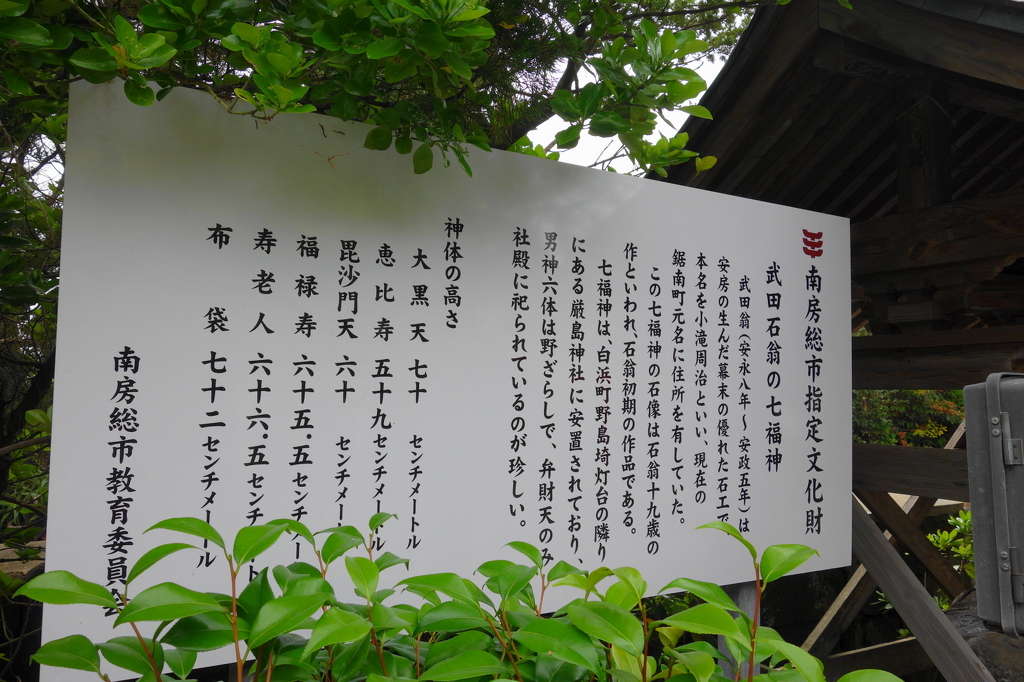 南房総市指定文化財
武田石翁の七福神
武田翁（安永八年～安政五年）は
安房の生んだ幕末の優れた石工で
本名を小滝周治といい、現在の
鋸南町元名に住所を有していた。
この七福神の石像は石翁十九歳の
作といわれ、石翁初期の作品である。
七福神は、白浜町野島埼灯台の隣り
にある厳島神社に安置されており、
男神六体は野ざらしで、弁財天のみ
社殿に祀られているのが珍しい。
神体の高さ
大黒天 七十 センチメートル
恵比寿 五十九センチメートル
毘沙門天 六十 センチメー
福禄寿 六十五.五センチメー
寿老人 六十六.五センチ
布袋 七十二センチメートル
南房総市教育委員